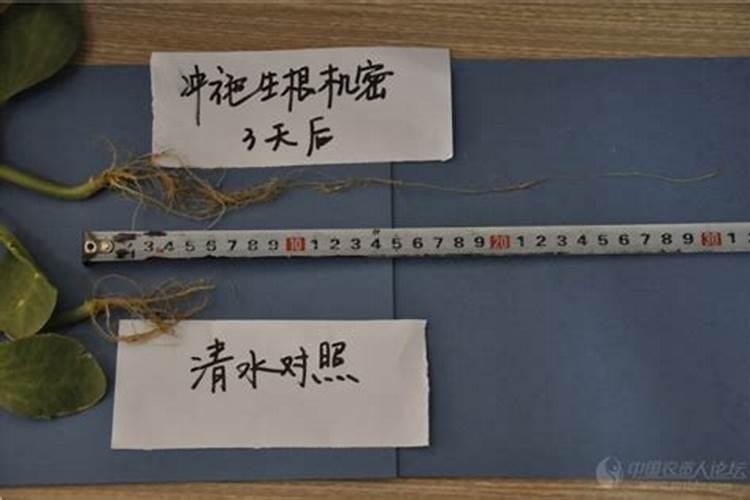 冲施生根机密
3天后
3 4 5 6 7 8 9 10 1 2 3 4 5 6 7 8 9 20 1 2 3 4 5 6 7 8 9 30 1
清水对照
中国农资人论坛